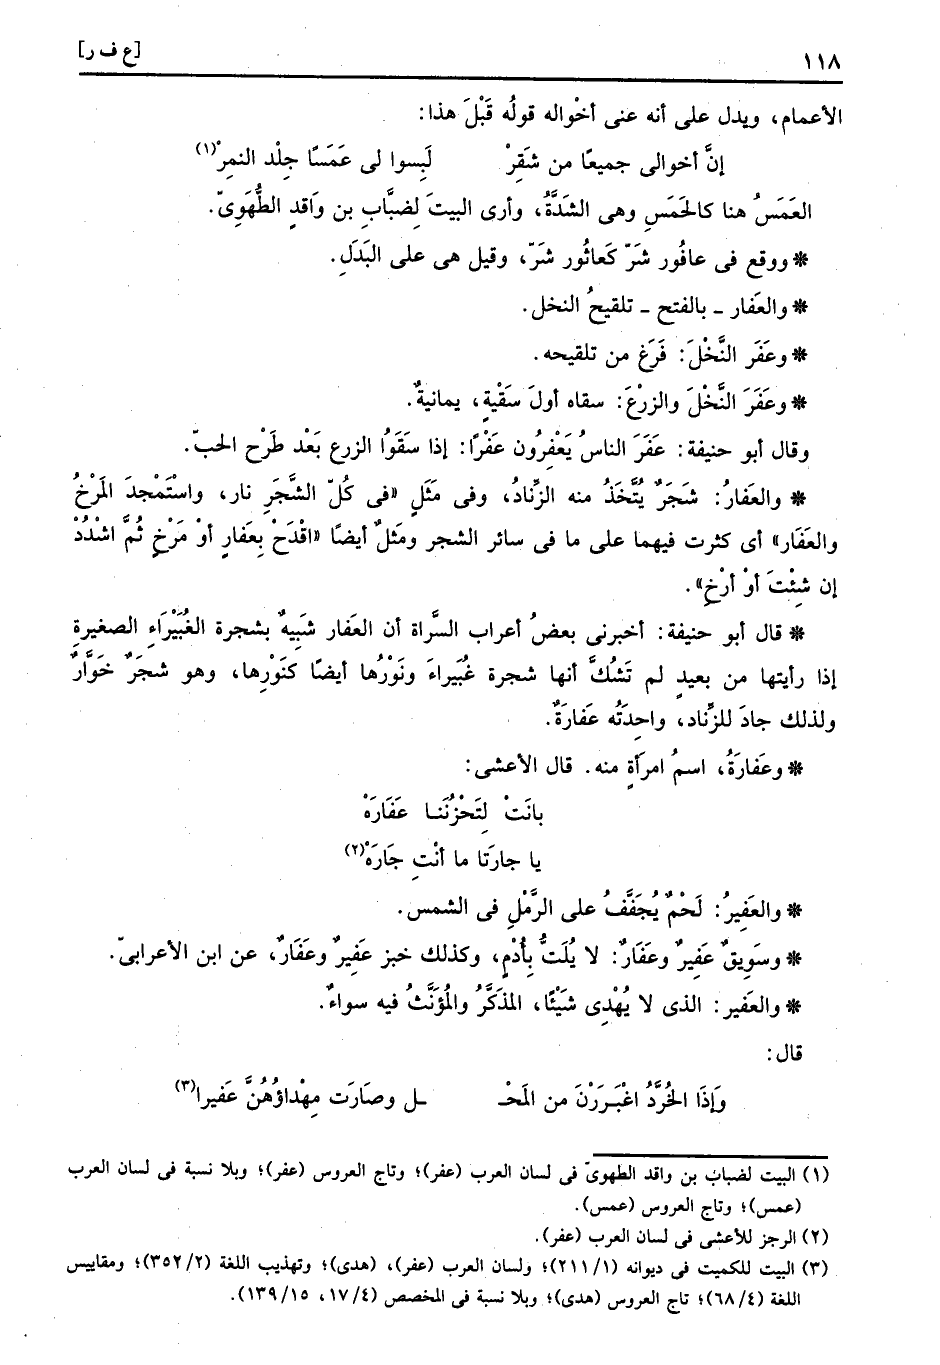 ١١٨ [ع ف ر]
الأعمام، ويدل على أنه عنى أخْواله قولُه قَبْلَ هذا:
إنَّ أخوالى جميعًا من شَقِرْ لَبِسوا لى عَمَسًا جِلْد النمِرْ(١)
العَمَسُ هنا كالحَمَسِ وهى الشدَّةُ، وأرى البيتَ لِضبَّابِ بن وَاقدٍ الطُّهَوِىّ.
* ووقع فى عافُور شَرّ كَعاثُور شَرّ، وقيل هى على البَدَلِ.
* والعَفار ـ بالفتح ـ تلقيحُ النخل.
* وعَفَر النَّخْلَ: فَرَغ من تلقيحه.
* وعَفَرَ النَّخْلَ والزرْعَ: سقاه أولَ سَقْيةٍ، يمانيةٌ.
وقال أبو حنيفة: عَفَرَ الناسُ يَعْفِرُون عَفْرًا: إذا سَقَوُا الزرع بَعْد طَرْح الحبّ.
* والعَفارُ: شَجَرٌ يُتَّخَذُ منه الزِّنادُ، وفى مَثَلٍ «فى كُلّ الشَّجَرِ نار، واسْتَمْجدَ المَرْخُ
والعَفَار» أى كثرت فيهما على ما فى سائر الشجر ومَثلٌ أيضًا «اقْدَحْ بِعَفارٍ أوْ مَرْخٍ ثُمَّ اشْدُدْ
إن شِئْتَ أوْ أرْخِ».
* قال أبو حنيفة: أخبرنى بعضُ أعراب السَّراة أن العَفار شَبِيهٌ بشجرة الغُبَيْرَاءِ الصغيرةِ
إذا رأيتها من بعيدٍ لم تَشُكَّ أنها شجرة غُبَيراءَ ونَوْرُها أيضًا كنَوْرِها، وهو شجَرٌ خَوَّارٌ
ولذلك جادَ للزِّناد، واحِدَتُه عَفارَةٌ.
* وعَفارَةُ، اسمُ امرَأةٍ منه. قال الأعشى:
بانَتْ لِتَحْزُنَنا عَفَارَهْ
يا جارَتا ما أنْتِ جَارَهْ(٢)
* والعَفِيرُ: لَحْمٌ يُجَفَّفُ على الرَّمْلِ فى الشمس.
* وسَوِيقٌ عَفِيرٌ وعَفَارٌ: لا يُلَتُّ بِأُدْمٍ، وكذلك خبز عَفِيرٌ وعَفَارٌ، عن ابن الأعرابىّ.
* والعَفير: الذى لا يُهْدِى شَيْئًا، المذَكَّرُ والمُؤنَّثُ فيه سواءٌ.
قال:
وَإذَا الخُرَّدُ اغْبَرَرْنَ من المَحْـ ـل وصَارَت مِهْداؤُهُنَّ عَفيرا(٣)
(١) البيت لضباب بن واقد الطهوىّ فى لسان العرب (عفر)؛ وتاج العروس (عفر)؛ وبلا نسبة فى لسان العرب
(عمس)؛ وتاج العروس (عمس).
(٢) الرجز للأعشى فى لسان العرب (عفر).
(٣) البيت للكميت فى ديوانه (٢١١/١)؛ ولسان العرب (عفر)، (هدى)؛ وتهذيب اللغة (٣٥٢/٢)؛ ومقاييس
اللغة (٦٨/٤)؛ تاج العروس (هدى)؛ وبلا نسبة فى المخصص (١٧/٤، ١٣٩/١٥).